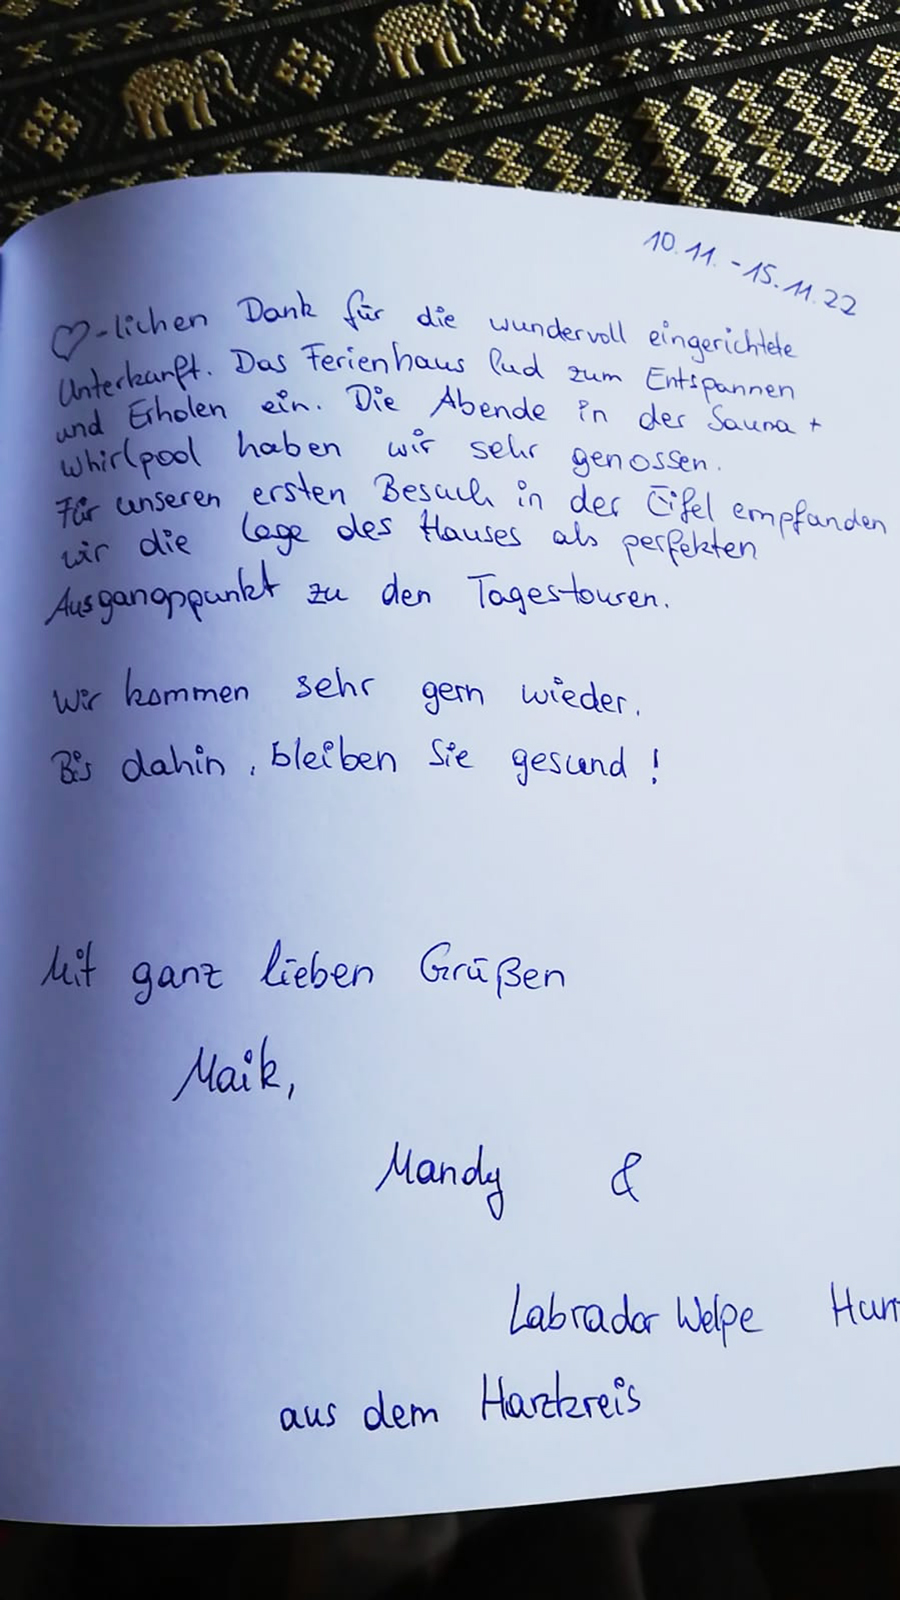 10.11. - 15.11.22
♡-lichen Dank für die wundervoll eingerichtete
Unterkunft. Das Ferienhaus lud zum Entspannen
und Erholen ein. Die Abende in der Sauna +
Whirlpool haben wir sehr genossen.
Für unseren ersten Besuch in der Eifel empfanden
wir die Lage des Hauses als perfekten
Ausgangppunkt zu den Tagestouren.
Wir kommen sehr gern wieder.
Bis dahin, bleiben Sie gesund!
Mit ganz lieben Grüßen
Maik,
Mandy &
Labrador Welpe
aus dem Harzkreis